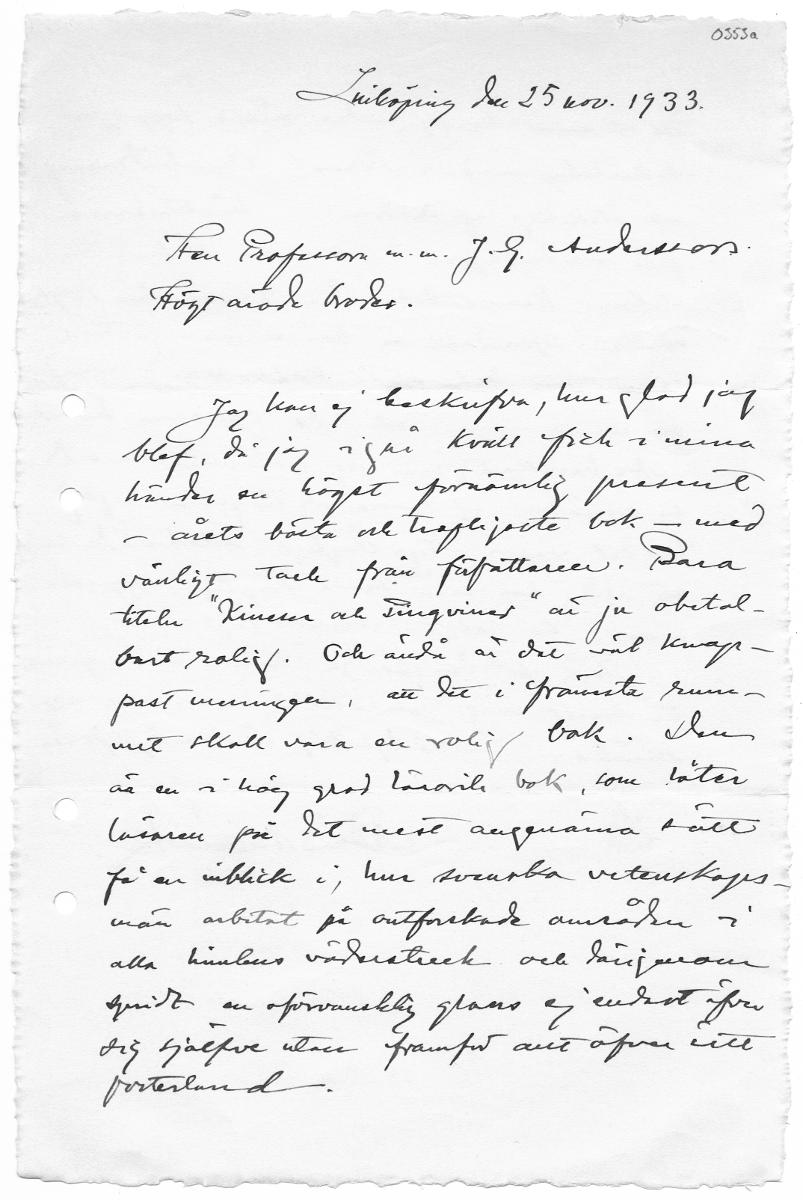 0353a
Linköping den 25 nov. 1933.
Herr Professorn m.m. J. G. Andersson.
Högt ärade broder.
Jag kan ej beskrifva, hur glad jag
blef, då jag i går kväll fick i mina
händer en högst förnämlig present
– årets bästa och trefligaste bok – med
vänligt tack från författaren. Bara
titeln "Kineser och Pingviner" är ju obetal-
bart rolig. Och ändå är det väl knap-
past meningen, att det i främsta rum-
met skall vara en rolig bok. Den
är en i hög grad lärorik bok, som låter
läsaren på det mest angenäma sätt
få en inblick i, hur svenska vetenskaps-
män arbetat på outforskade områden i
alla himlens väderstreck och därigenom
spridt en oförvansklig glans ej endast öfver
sig sjelfve utan framför allt öfver sitt
fosterland.